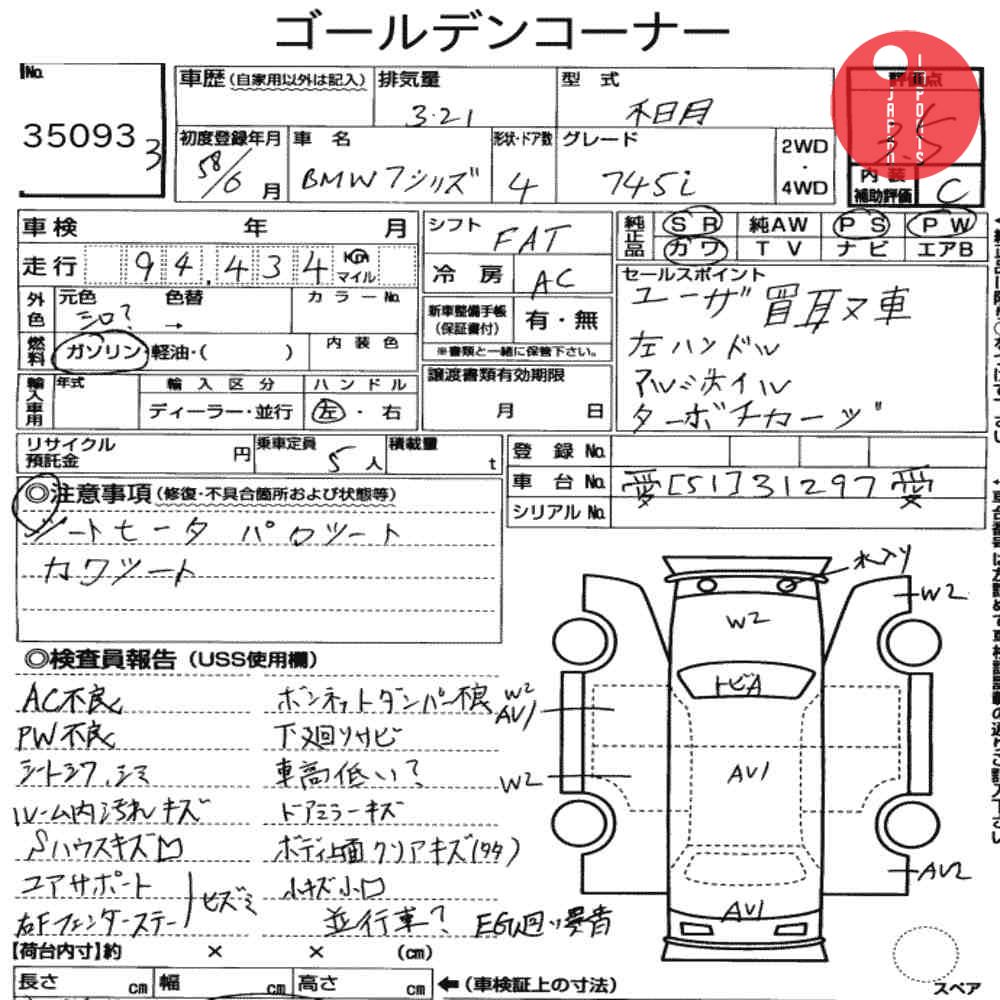 ゴールデンコーナー
No. 35093 3
車歴(自家用以外は記入) 排気量 3.21 型式 不明 評価点 3.5
JAPAN IMPORTS
初度登録年月 58/6月 車名 BMW7シリーズ 形状・ドア数 4 グレード 745i 2WD・4WD 内装補助評価 C
車検 年 月 シフト FAT 純正品 SR 純AW PS PW
走行 94,434 Km マイル 冷房 AC カワ TV ナビ エアB
外色 元色 シロ? 色替 → カラーNo. 新車整備手帳(保証書付) 有・無 セールスポイント
ユーザ買取車
燃料 ガソリン・軽油・( ) 内装色 ※書類と一緒に保管下さい。 左ハンドル
輸入車用 年式 輸入区分 ハンドル 譲渡書類有効期限 アルミホイル
ディーラー・並行 左・右 月 日
リサイクル預託金 円 乗車定員 5人 積載量 t 登録No.
車台No. 愛[51]31297愛
シリアルNo.
◎注意事項(修復・不具合箇所および状態等)
シートヒータ パワシート
カワシート
◎検査員報告(USS使用欄)
AC不良 ボンネットダンパー不良
PW不良 下廻りサビ
シートシワ、シミ 車高低い?
ルーム内汚れキズ ドアミラーキズ
Sハウスキズ ボディ上面クリアキズ
コアサポート 小キズ小凹
右Fフェンダーステー ヒズミ 並行車?
水入り
W2
W2
トビA
W2
AV1
AV1
W2
AV2
AV1
スペア
【荷台内寸】約 × × (cm)
長さ cm 幅 cm 高さ cm ←(車検証上の寸法)